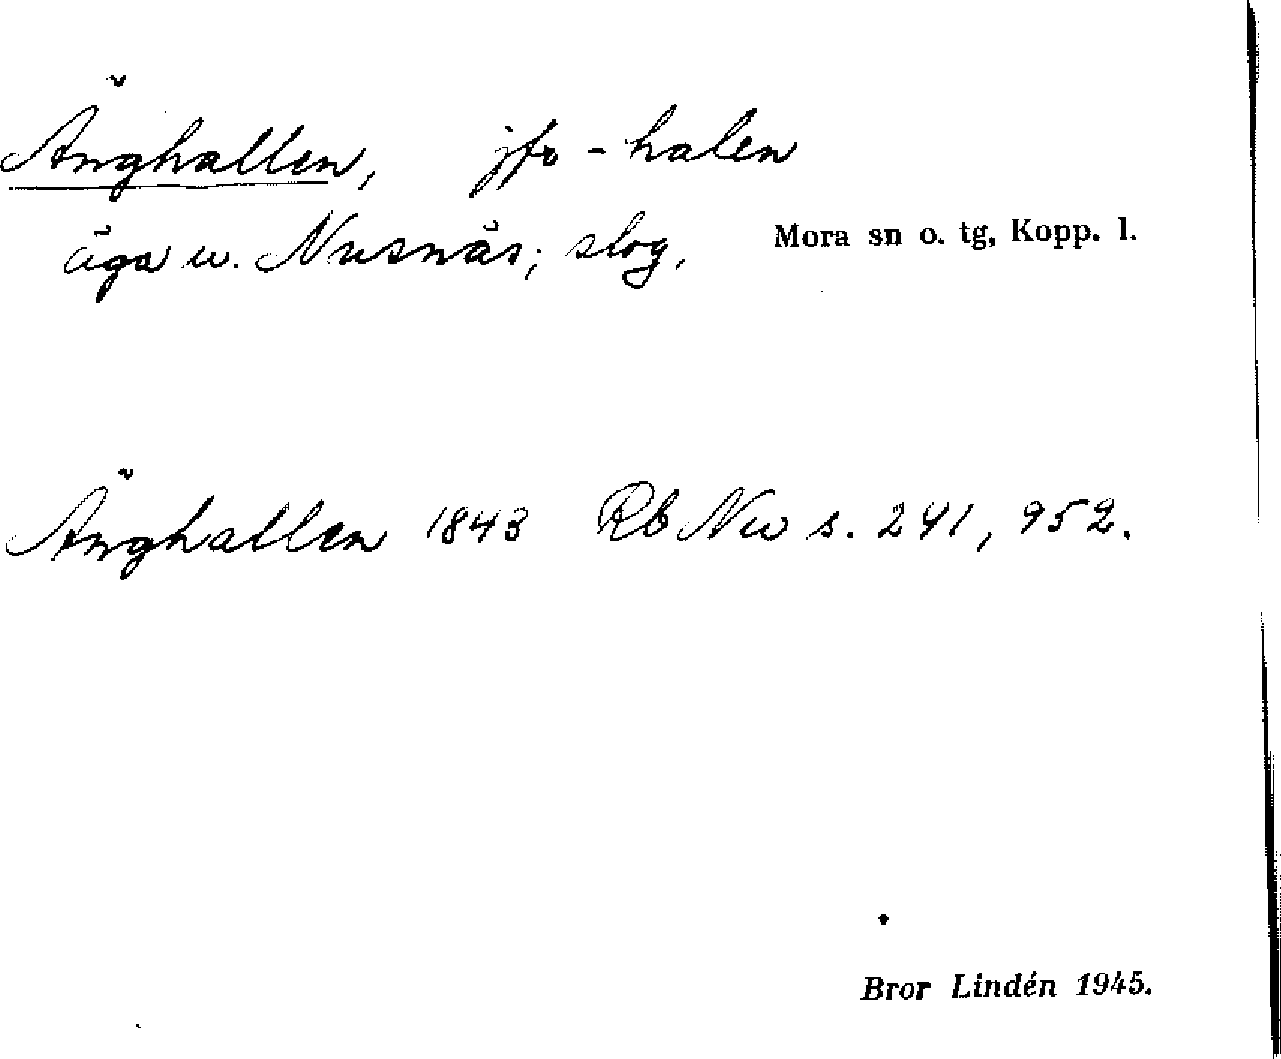 Änghallen, jfr -halen
äga u. Nusnäs; slog.
Mora sn o. tg, Kopp. l.
Änghallen 1843 Rb Nu s. 241, 952.
Bror Lindén 1945.